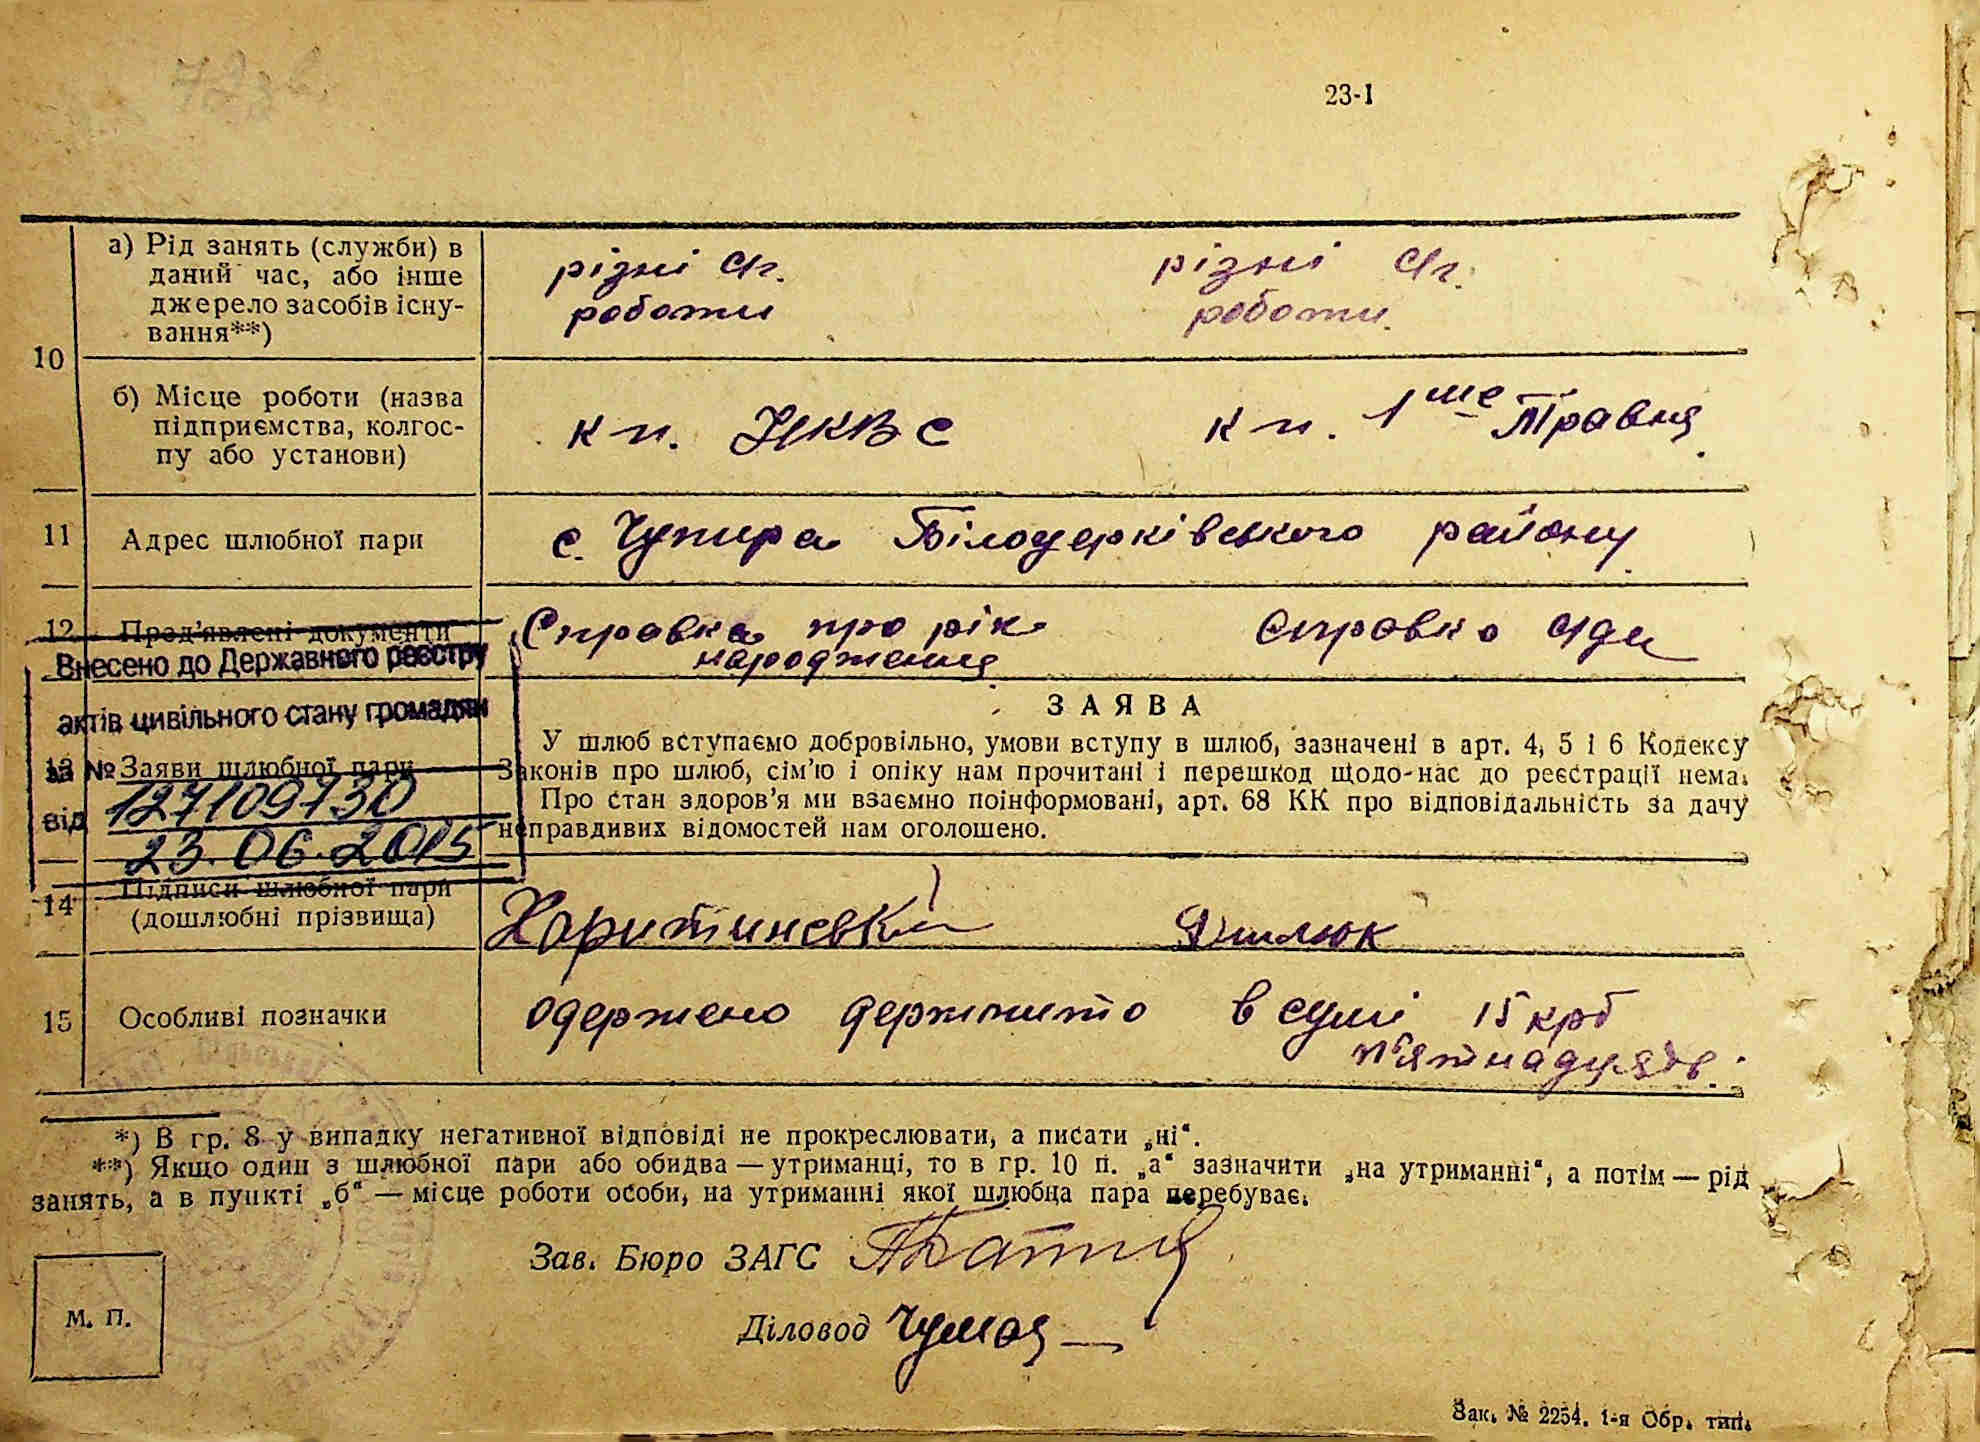 23-І
10
а) Рід занять (служби) в
даний час, або інше
джерело засобів існу-
вання**)
різні с/г.
роботи
різні с/г.
роботи.
б) Місце роботи (назва
підприємства, колгос-
пу або установи)
к п. НКВС
к п. 1ше Травня
11
Адрес шлюбної пари
с. Чупира Білоцерківського району
12
Пред'явлені документи
Справка про рік
народження
Справка
Внесено до Державного реєстру
актів цивільного стану громадян
за №
127109730
від
23.06.2015
13
Заяви шлюбної пари
ЗАЯВА
У шлюб вступаємо добровільно, умови вступу в шлюб, зазначені в арт. 4, 5 і 6 Кодексу
Законів про шлюб, сім'ю і опіку нам прочитані і перешкод щодо-нас до реєстрації нема.
Про стан здоров'я ми взаємно поінформовані, арт. 68 КК про відповідальність за дачу
неправдивих відомостей нам оголошено.
14
Підписи шлюбної пари
(дошлюбні прізвища)
Харитинський
15
Особливі позначки
одержено держмито в сумі 15 крб
п'ятнадцять.
*) В гр. 8 у випадку негативної відповіді не прокреслювати, а писати „ні“.
**) Якщо один з шлюбної пари або обидва — утриманці, то в гр. 10 п. „а“ зазначити „на утриманні“, а потім — рід
занять, а в пункті „б“ — місце роботи особи, на утриманні якої шлюбна пара перебуває.
Зав. Бюро ЗАГС
Діловод
М. П.
Зак. № 2254. 1-я Обр. тип.